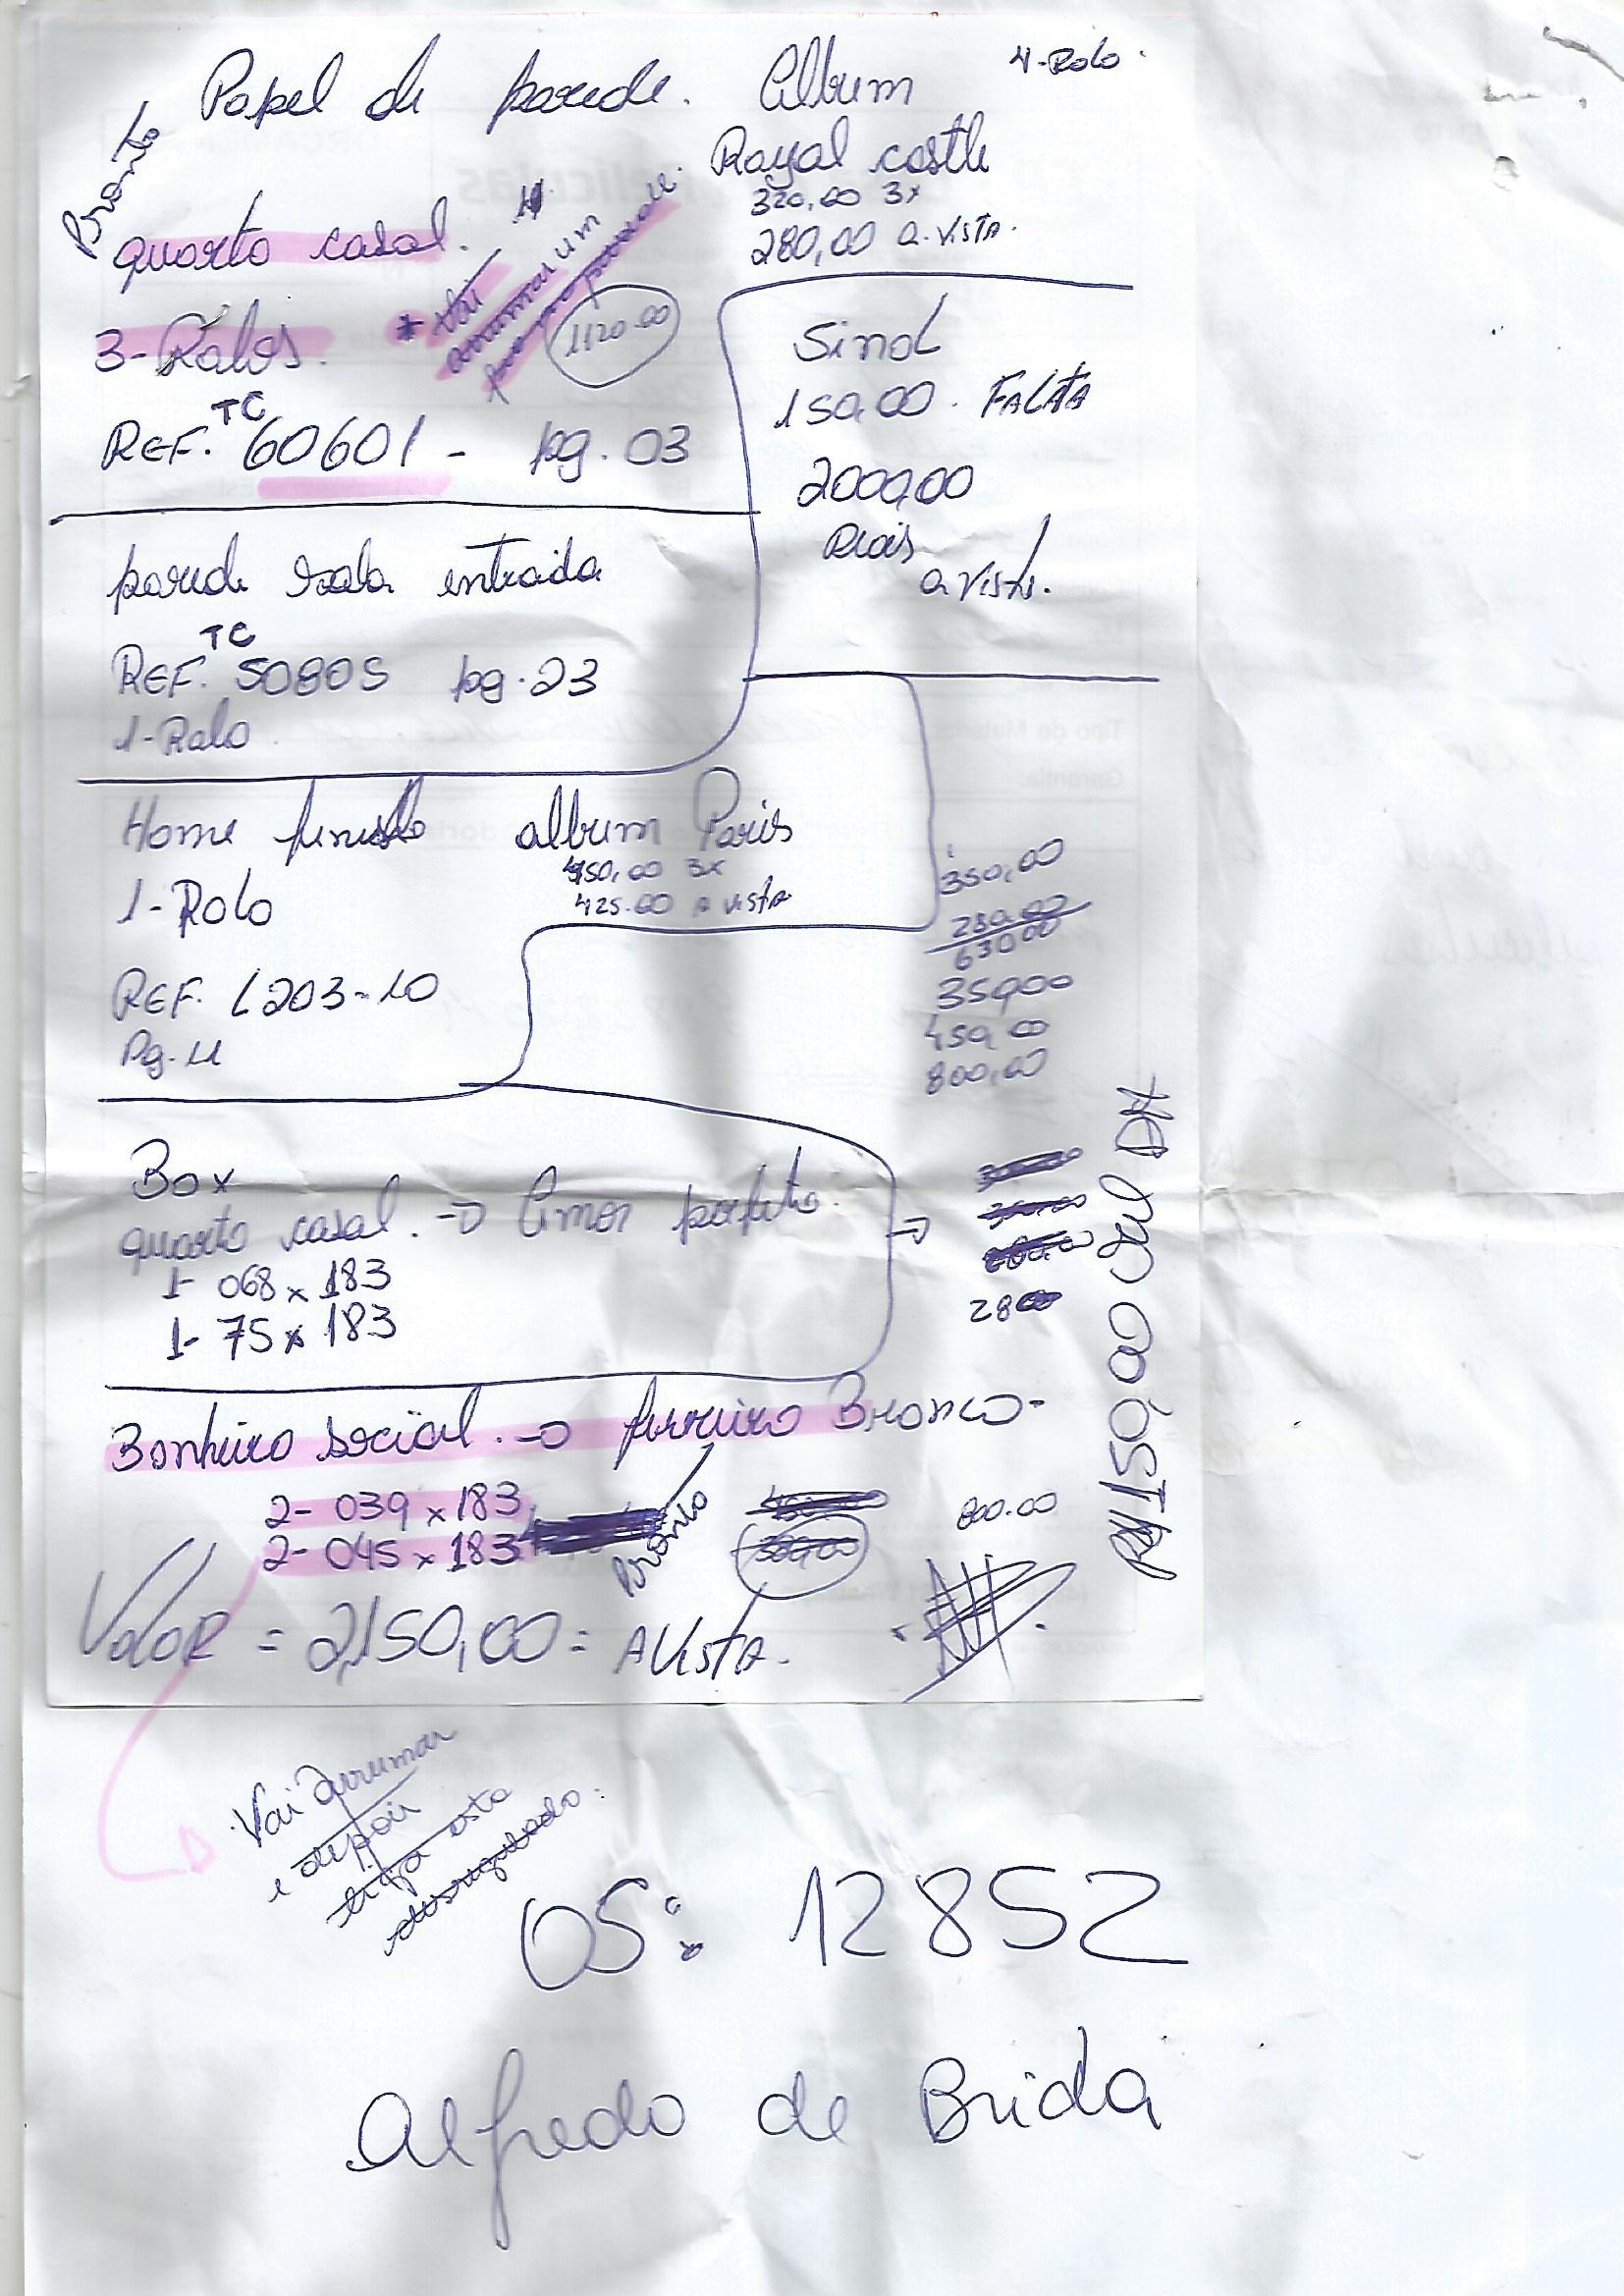 4-Rolo.
Papel de parede. Album
Royal castle
Pronto
320,00 3x
280,00 a.vista.
quarto casal.
* Vai
arrumar um
1120.00
3-Rolos.
REF. TC 60601 - pg. 03
Sinal
150,00. FALTA
2000,00
Reais
a vista.
parede sala entrada
REF. TC 50805 pg.23
1-Rolo
Home album Paris
450,00 3x
425.00 A vista
1-Rolo
REF. L203-10
Pg. 11
350,00
280,00
630,00
350,00
450,00
800,00
Box
quarto casal. → Amor perfeito.
1- 068 x 183
1- 75 x 183
→
2800
150,00 Sul DH
Banheiro social. → Branco-
2- 039 x 183
2- 045 x 183
Pronto
800.00
Valor = 2,150,00 = A Vista.
Vai Arrumar
e depois
liga esta
desregulado.
OS: 12852
Alfredo de Brida